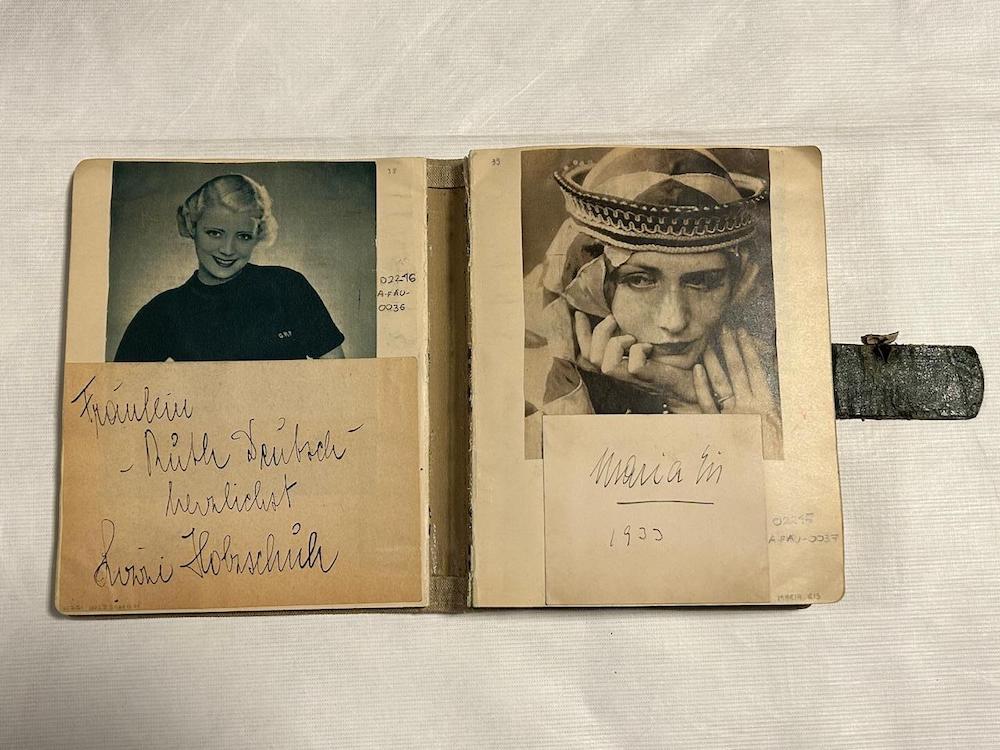 38
D2276
A-FAU-
0036
Fräulein
- Ruth Deutsch -
herzlichst
Lizzi Holzschuh
LIZZI HOLZSCHUH
39
Maria Eis
1933
A-FAU-0037
MARIA EIS